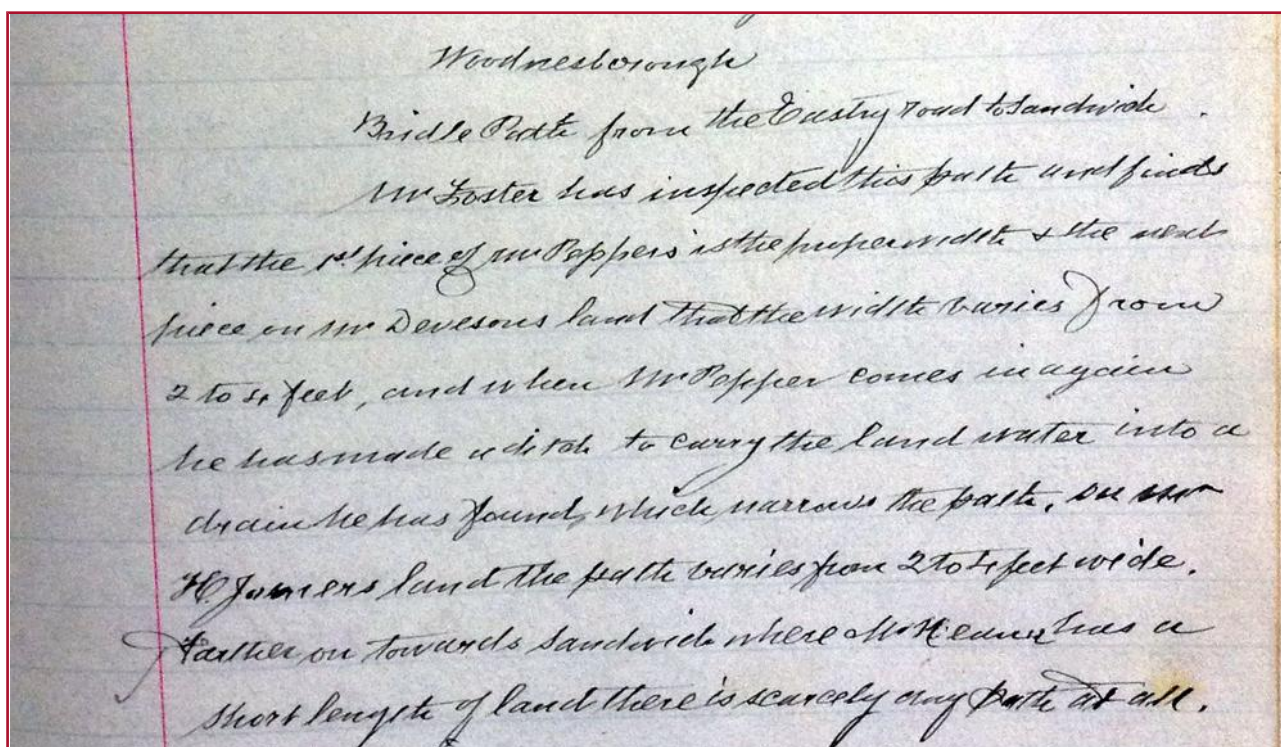 Woodnesborough
Bridle Path from the Eastry road to Sandwich.
Mr Foster has inspected this path and finds
that the 1st piece of Mr Peppers is the proper width & the next
piece on Mr Devesons land that the width varies from
2 to 4 feet, and when Mr Pepper comes in again
he has made a ditch to carry the land water into a
drain he has found, which narrows the path. on Mr
H. land the path varies from 2 to 4 feet wide.
Farther on towards Sandwich where Mr has a
short length of land there is scarcely any path at all.